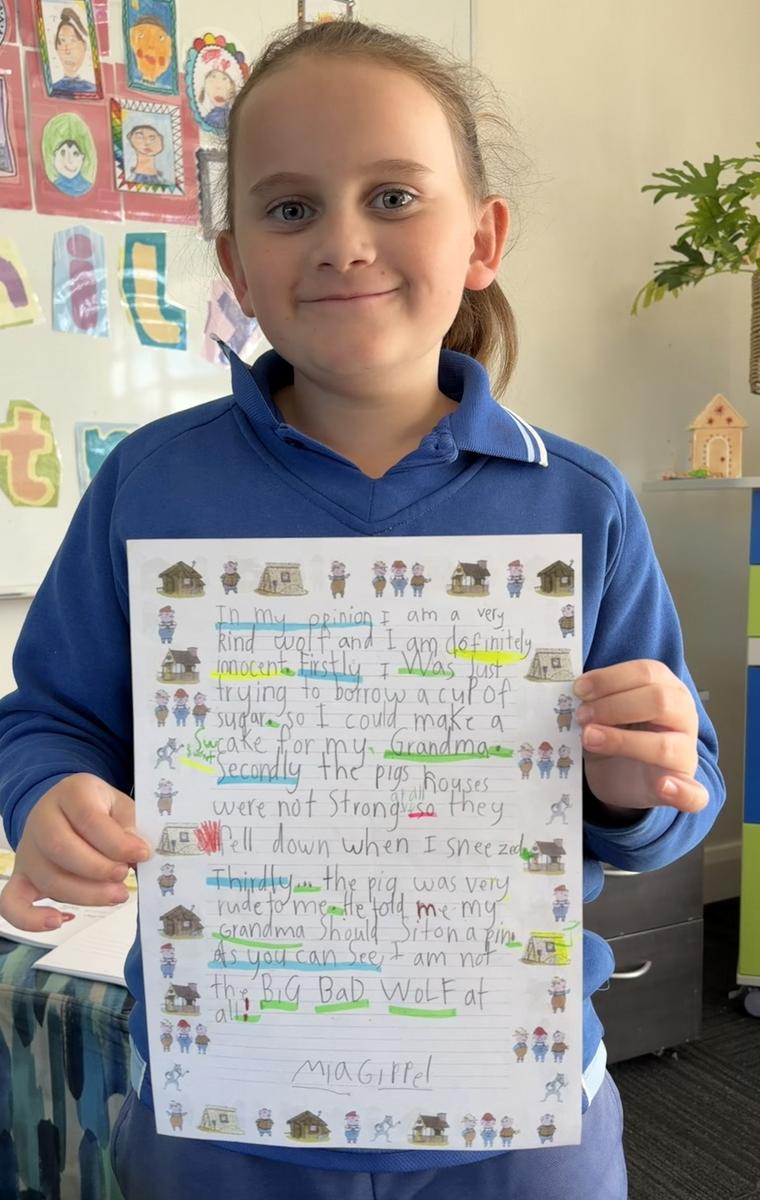 i
il
t
In my opinion I am a very
kind wolf and I am definitely
innocent. Firstly I Was Just
trying to borrow a cup of
sugar. so I could make a
cake for my. Grandma.
Secondly the pigs houses
at all
were not Strong so they
fell down when I sneezed.
Thirdly... the pig was very
rude to me. He told me my
Grandma Should Sit on a pin.
As you can See, I am not
the BiG BaD WoLF at
all!
Mia Gippel